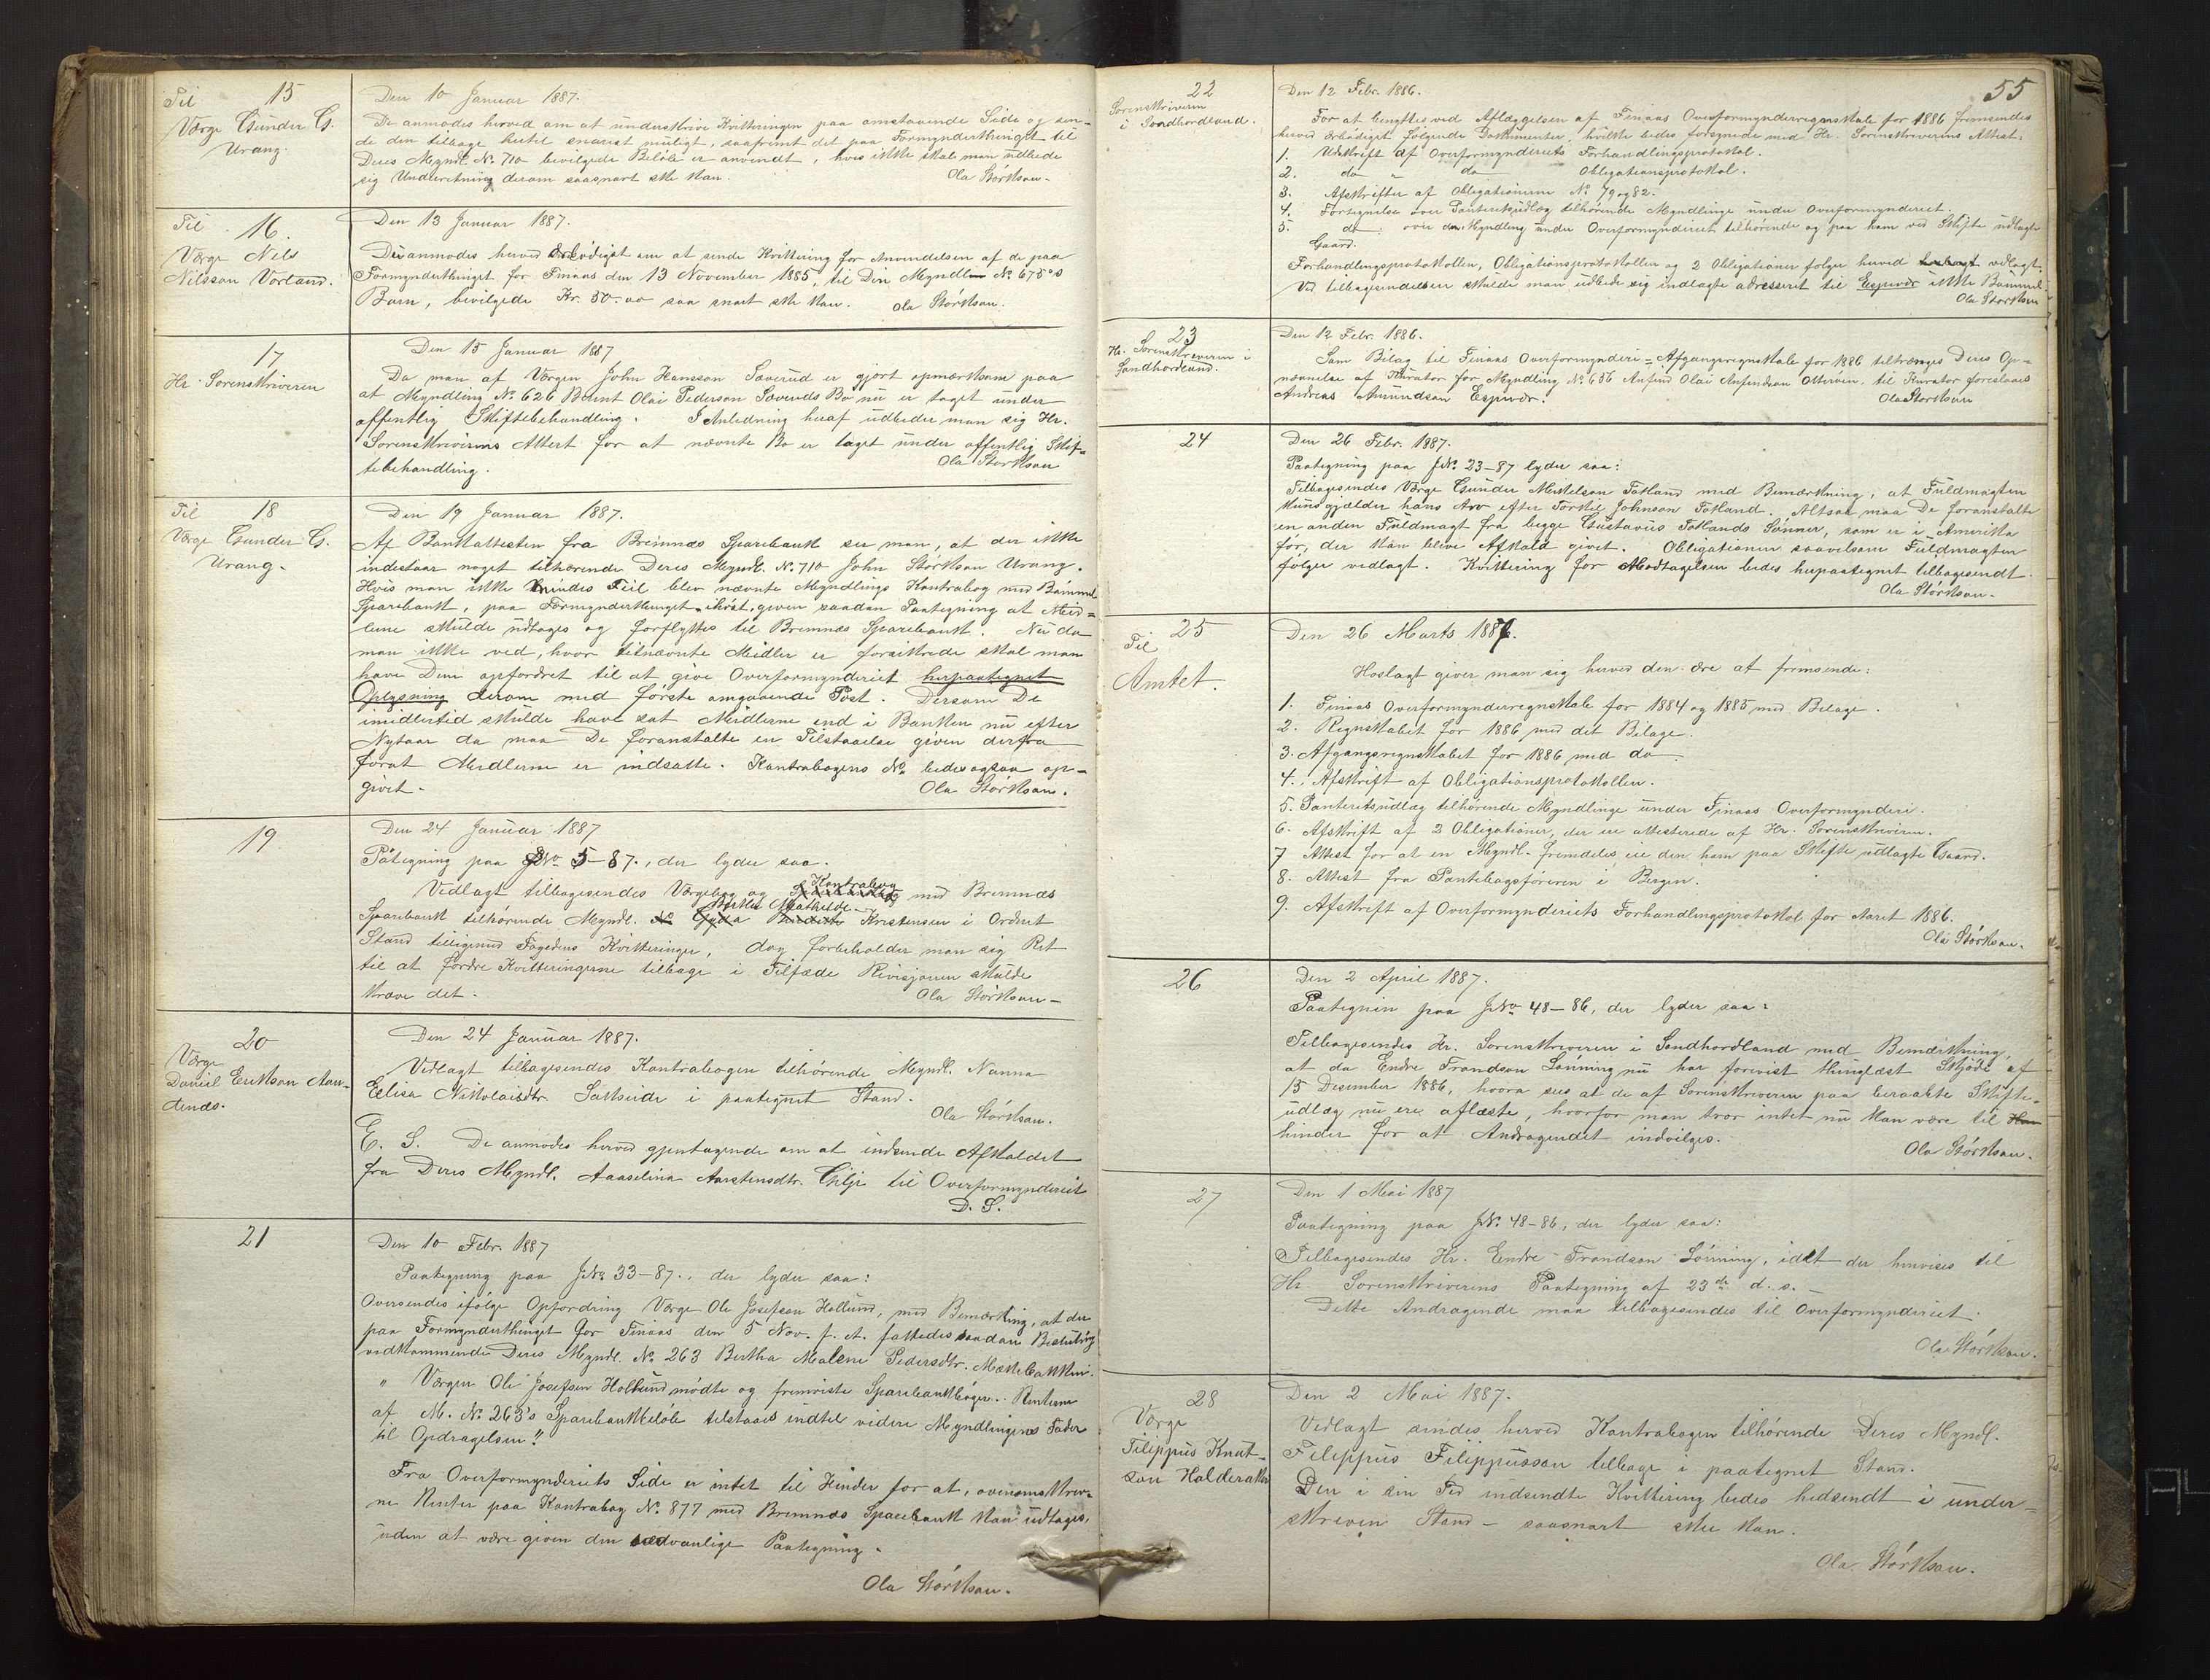 15
Til
Værge Gunder G.
Urang.
Den 10 Januar 1887.
De anmodes herved om at underskrive Kvitteringen paa omstaaende Side og sen-
de den tilbage hertil snarest muligt, saafremt det paa Formynderthinget til
Deres Myndl. No. 710 bevilgede Beløb er anvendt, hvis ikke skal man udbede
sig Underretning derom saasnart ske kan.
Ola Størkson.
Til 16.
Værge Nels
Nilsson Vorland.
Den 13 Januar 1887.
De anmodes herved ærbødigst om at sende Kvittering for Anvendelsen af de paa
Formynderthinget for Finaas den 13 November 1885, til Din Myndl No 675s
Barn, bevilgede Kr. 50.00 saa snart ske kan.
Ola Størkson.
17
Hr. Sorenskriveren
Den 15 Januar 1887
Da man af Værgen John Hansson Søverud er gjort opmærksom paa
at Myndling No. 626 Bernt Olai Pederson Søveruds Bo nu er taget under
offentlig Skiftebehandling. I Anledning heraf udbeder man sig Hr.
Sorenskriverens Attest for at nævnte Bo er taget under offentlig Skif-
tebehandling.
Ola Størkson
Til 18
Værge Gunder G.
Urang.
Den 19 Januar 1887.
Af Bankattesten fra Bremnæs Sparebank ser man, at der ikke
indestaar noget tilhørende Deres Myndl. No. 710 John Størkson Urang.
Hvis man ikke mindes Feil blev nævnte Myndlings Kontrabog med Bømmel
Sparebank, paa Formynderthinget ihøst, given saadan Paategning at Mid-
lerne skulde udtages og forflyttes til Bremnæs Sparebank. Nu da
man ikke ved, hvor bitnævnte Midler er forsikrede skal man
have Dem opfordret til at give Overformynderiet herpaategnet
Oplysning derom med første omgaaende Post. Dersom De
imidlertid skulde have sat Midlerne ind i Banken nu efter
Nytaar da maa De foranstalte en Tilstaaelse given derfra
forat Midlerne er indsatte. Kontrabogens No. bedes ogsaa op-
givet.
Ola Størkson.
19
Den 24 Januar 1887
Påtegning paa JNo 5-87., der lyder saa.
Kontrabog
Vedlagt tilbagesendes Værgebog og med Bremnæs
Mathilde
Sparebank tilhørende Myndl. Kristensen i Ordnet
Stand tilligemed Fogedens Kvitteringer, dog forbeholder man sig Ret
til at fordre Kvitteringerne tilbage i Tilfæde Revisjonen skulde
kræve det.
Ola Størkson
20
Værge
Daniel Erikson Aan-
denæs.
Den 24 Januar 1887.
Vedlagt tilbagesendes Kontrabogen tilhørende Myndl. Nanna
Elisa Nikolaisdtr. Sakseide i paategnet Stand.
Ola Størkson.
E. S. De anmodes herved gjentagende om at indsende Afkaldet
fra Deres Myndl. Aaaselina Aarstensdtr. Gilje til Overformynderiet
D. S.
21
Den 10 Febr. 1887
Paategning paa JNo 33-87., der lyder saa:
Oversendes ifølge Opfordring Værge Ole Josefson Hollund, med Bemærking, at der
paa Formynderthinget for Finaas den 5 Nov. f. A. fattedes saadan Beslutning
vedkommende Deres Myndl. No. 263 Bertha Malene Pedersdtr. Mækkebakken.
" Værgen Ole Josefsen Hollund mødte og fremviste Sparebankbogen. Renterne
af M. No. 263's Sparebankbeløb tilstaaes indtil videre Myndlingens Fader
til Opdragelsen."
Fra Overformynderiets Side er intet til Hinder for at, ovenomskrev-
ne Renter paa Kontrabog No. 877 med Bremnæs Sparebank kan udtages,
uden at være given den sædvanlige Paategning.
Ola Størkson.
55
22
Sorenskriveren
i Søndhordland.
Den 12 Febr. 1886.
For at benyttes ved Aflæggelsen af Finaas Overformynderregnskab for 1886 fremsendes
herved ærbødigst følgende Dokumenter, hvilke bedes forsynede med Hr. Sorenskriverens Attest:
1. Udskrift af Overformynderiets Forhandlingsprotokol.
2. do " do Obligationsprotokol.
3. Afskrifter af Obligationerne No. 79 og 82.
4. Fortegnelse over Panteretsudlæg tilhørende Myndlinge under Overformynderiet.
5. do over den Myndling under Overformynderiet tilhørende og paa ham ved Skifte udlagte
Gaard.
Forhandlingsprotokollen, Obligationsprotokollen og 2 Obligationer følger herved vedlagt.
Ved tilbagesendelsen skulde man udbede sig indlagte adresseret til Espevær ikke Bømmel.
Ola Størkson
23
Hr. Sorenskriveren i
Søndhordland.
Den 12 Febr. 1886.
Som Bilag til Finaas Overformynderi-Afgangsregnskab for 1886 tiltrænges Deres Op-
nævnelse af Kurator for Myndling No. 656 Anfind Olai Anfindson Otterøen, til Kurator foreslaaes
Andreas Amundson Espevær.
Ola Størkson
24
Den 26 Febr. 1887.
Paategning paa JNo. 23-87 lyder saa:
Tilbagesendes Værge Gunder Mikkelson Totland med Bemærkning, at Fuldmagten
kun gjælder hans Arv efter Torkil Johnson Totland. Altsaa maa De foranstalte
en anden Fuldmagt fra begge Gustavus Totlands Sønner, som er i Amerika
før, der kan blive Afkald givet. Obligationen saavelsom Fuldmagten
følger vedlagt. Kvittering for Modtagelsen bedes herpaategnet tilbagesendt.
Ola Størkson.
25
Til
Amtet.
Den 26 Marts 1887.
Hoslagt giver man sig herved den ære at fremsende:
1. Finaas Overformynderregnskab for 1884 og 1885 med Bilage.
2. Regnskabet for 1886 med det Bilage.
3. Afgangsregnskabet for 1886 med do
4. Afskrift af Obligationsprotokollen.
5. Panteretsudlæg tilhørende Myndlinge under Finaas Overformynderi.
6. Afskrift af 2 Obligationer, der ere attesterede af Hr. Sorenskriveren.
7 Attest for at en Myndl. fremdeles eie den ham paa Skifte udlagte Gaard.
8. Attest fra Pantebogsføreren i Bergen.
9. Afskrift af Overformynderiets Forhandlingsprotokol for Aaret 1886.
Ola Størkson.
26
Den 2 April 1887.
Paategnin paa JNo 48-86, der lyder saa:
Tilbagesendes Hr. Sorenskriveren i Søndhordland med Bemærkning,
at da Endre Trondson Lønning nu har forevist thinglæst Skjøde af
15 Desember 1886, hvora sees at de af Sorenskriveren paa beraabte Skifte-
udlæg nu ere aflæste, hvorfor man tror intet nu kan være til
hinder for at Andragendet indvilges.
Ola Størkson.
27
Den 1 Mai 1887
Paategning paa JNo. 48-86, der lyder saa:
Tilbagesendes Hr. Endre Trondson Lønning, idet der henvises til
Hr. Sorenskriverens Paategning af 23de d. s.
Dette Andragende maa tilbagesendes til Overformynderiet.
Ola Størkson.
28
Værge
Filippus Knut-
son Holderaker
Den 2 Mai 1887.
Vedlagt sendes herved Kontrabogen tilhørende Deres Myndl.
Filippus Filippusson tilbage i paategnet Stand.
Den i sin Tid indsendte Kvittering bedes hidsendt i under-
skreven Stand - saasnart skee kan.
Ola Størkson.